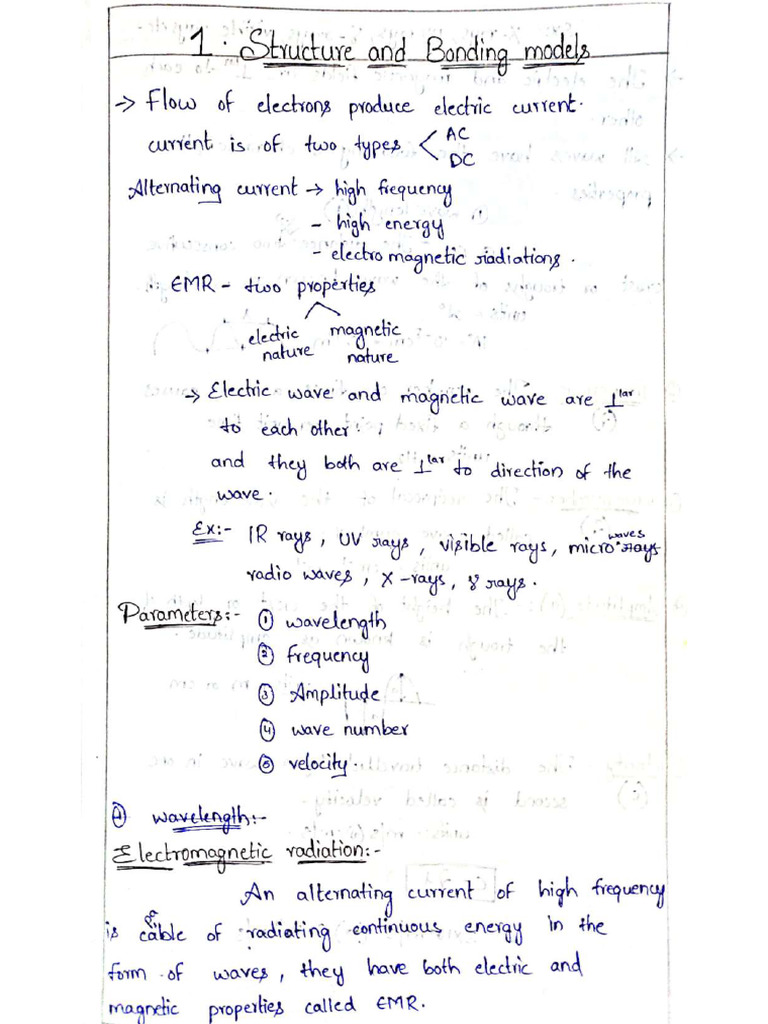 1. Structure and Bonding models
→ Flow of electrons produce electric current.
current is of two types < AC
DC
Alternating current → high frequency
- high energy
- electro magnetic radiations.
∴ EMR - two properties
electric nature magnetic nature
→ Electric wave and magnetic wave are ⊥lar
to each other.
and they both are ⊥lar to direction of the
wave.
Ex:- IR rays, UV rays, visible rays, micro waves rays
radio waves, X-rays, γ rays.
Parameters:- ① wavelength
② frequency
③ Amplitude
④ wave number
⑤ velocity.
wavelength:-
Electromagnetic radiation:-
An alternating current of high frequency
is capable of radiating continuous energy in the
form of waves, they have both electric and
magnetic properties called EMR.